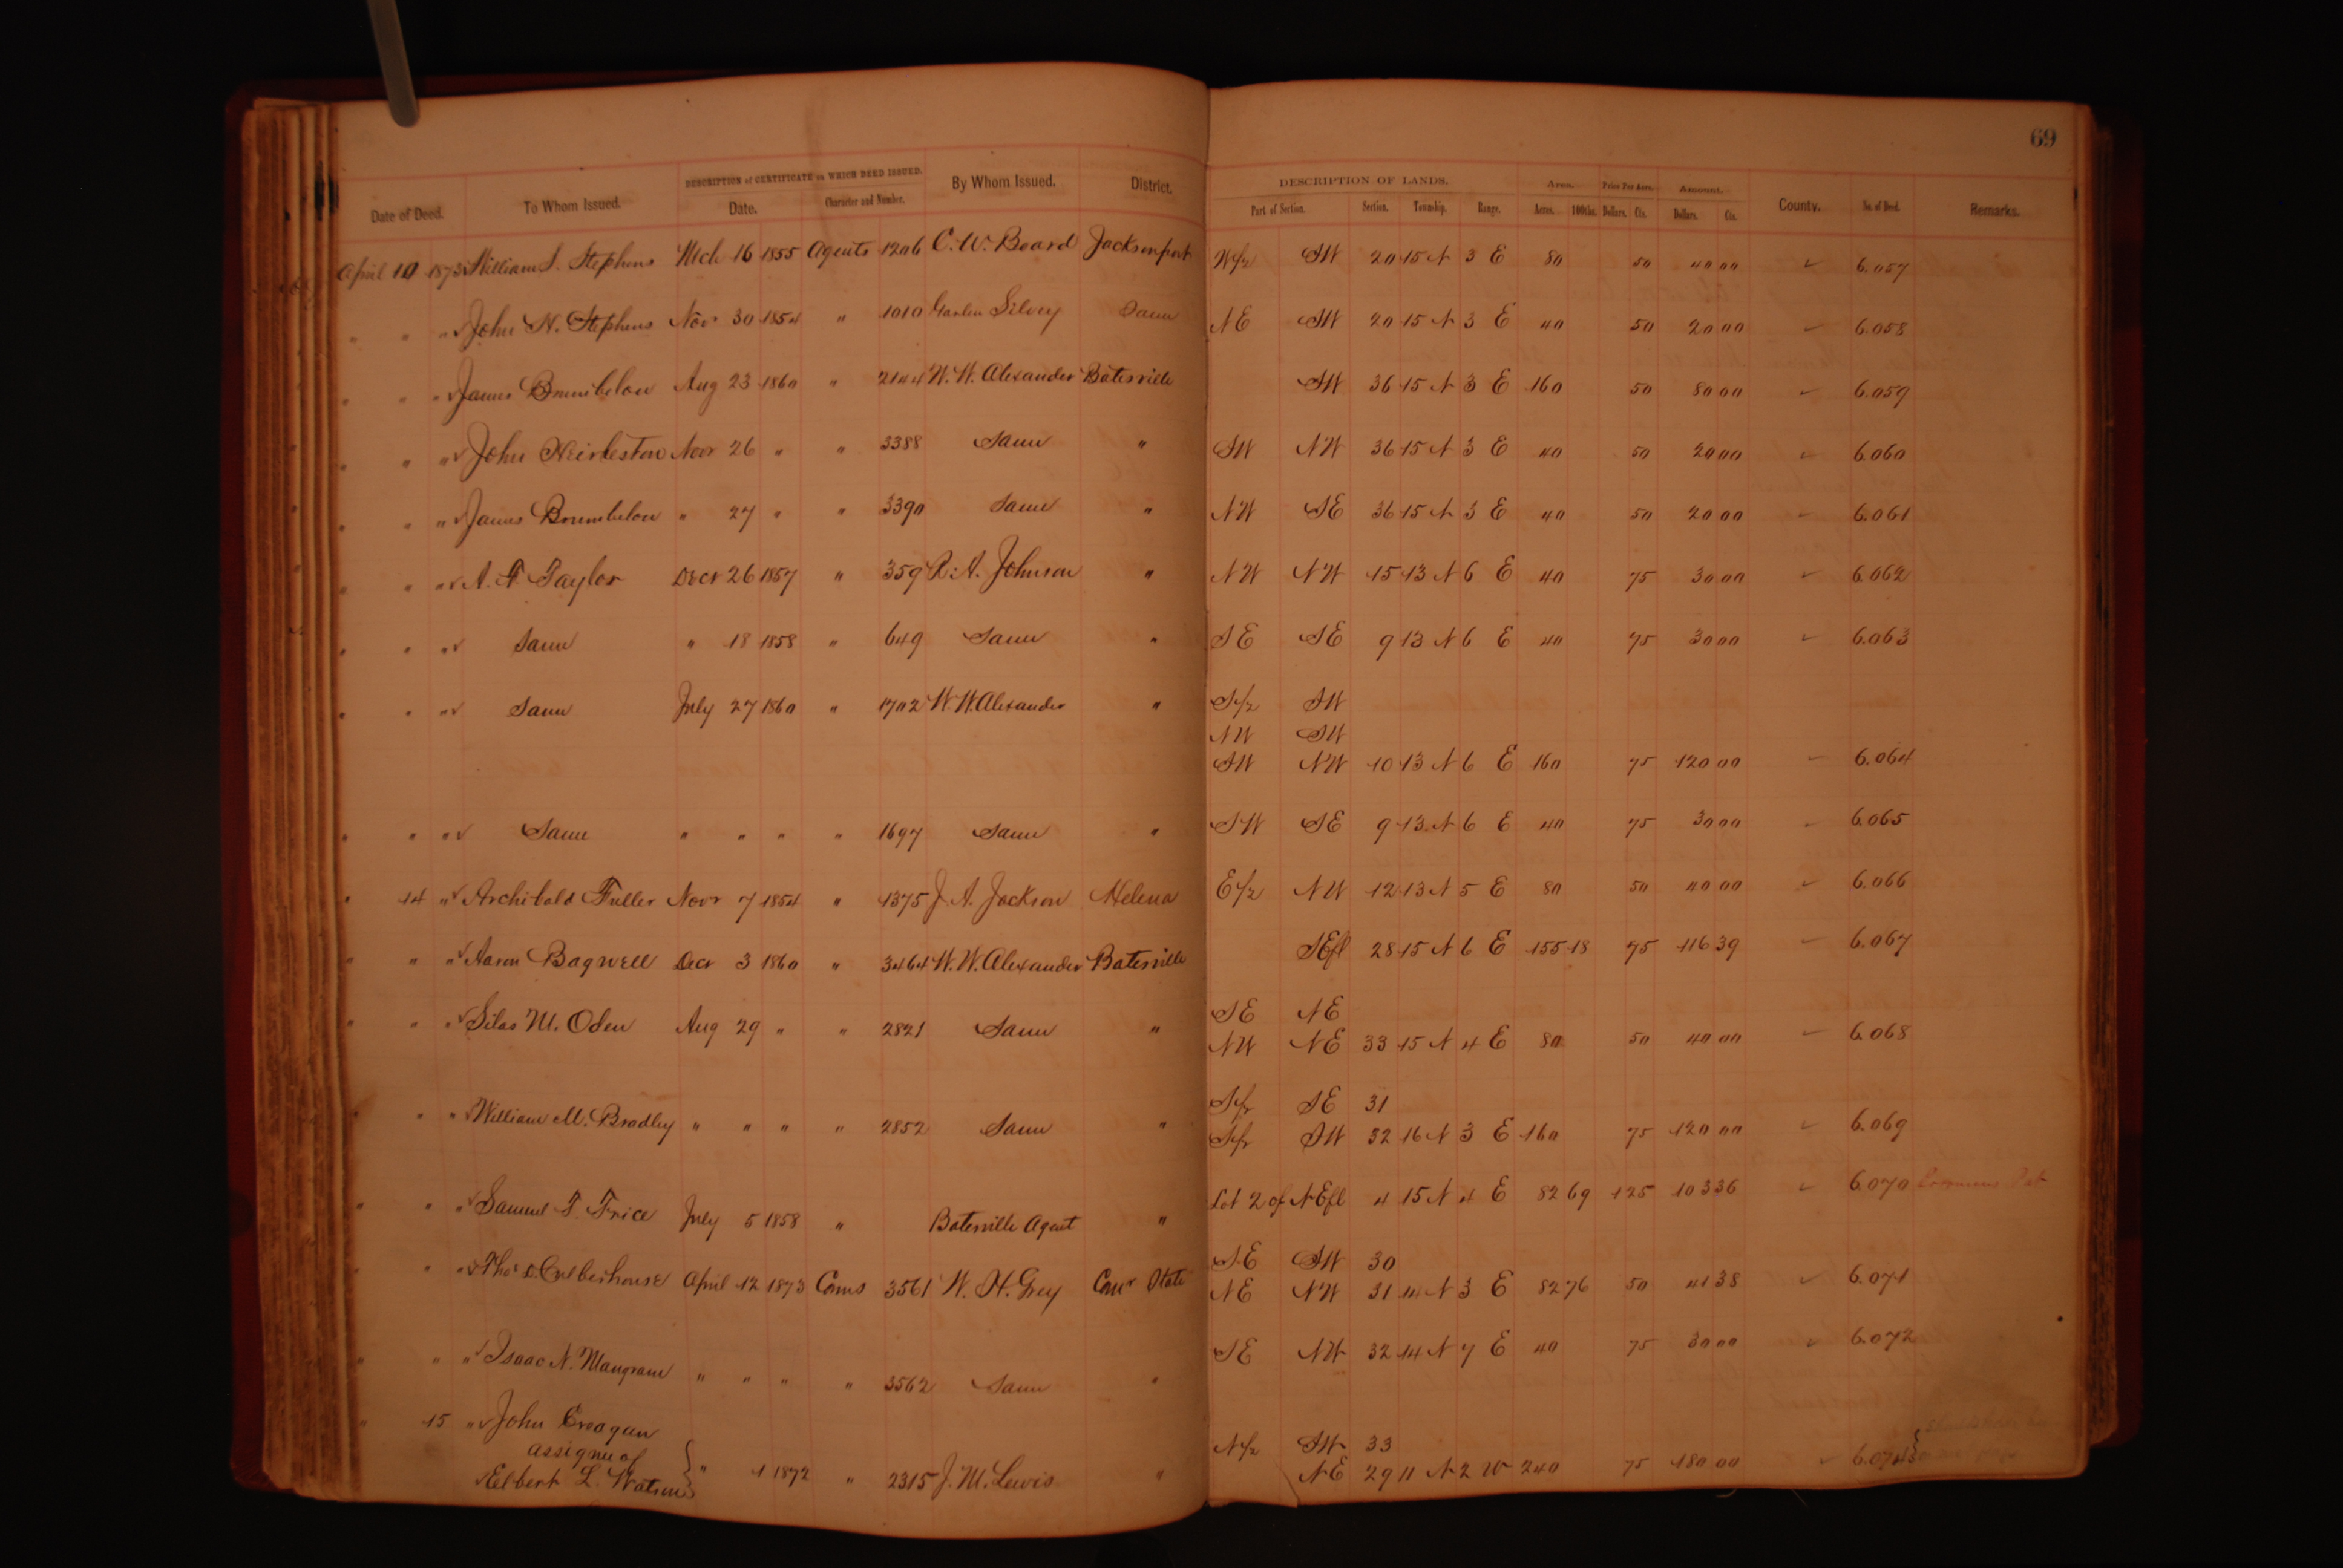 69
DESCRIPTION of CERTIFICATE on WHICH DEED ISSUED. DESCRIPTION OF LANDS. Area. Price Per Acre. Amount.
Date of Deed. To Whom Issued. Date. Character and Number. By Whom Issued. District. Part of Section. Section. Township. Range. Acres. 100ths. Dollars. Cts. Dollars. Cts. County. No. of Deed. Remarks.
April 10 1873 William S. Stephens Mch 16 1855 Agents 1206 C. W. Board Jacksonport W/2 SW 20 15 N 3 E 80 50 40 00 ✓ 6.057
" " " ✓ John H. Stephens Nov 30 1854 " 1010 Silvey Same NE SW 20 15 N 3 E 40 50 20 00 ✓ 6.058
" " " ✓ James Brumbelow Aug 23 1860 " 2144 W. W. Alexander Batesville SW 36 15 N 3 E 160 50 80 00 ✓ 6.059
" " " ✓ John Novr 26 " " 3388 Same " SW NW 36 15 N 3 E 40 50 20 00 ✓ 6.060
" " " ✓ James Brumbelow " 27 " " 3390 Same " NW SE 36 15 N 3 E 40 50 20 00 ✓ 6.061
" " " ✓ A. F Taylor Decr 26 1857 " 359 R. A. Johnson " NW NW 15 13 N 6 E 40 75 30 00 ✓ 6.062
" " " ✓ Same " 18 1858 " 649 Same " SE SE 9 13 N 6 E 40 75 30 00 ✓ 6.063
" " " ✓ Same July 27 1860 " 1702 W. W. Alexander " S/2 SW
NW SW
SW NW 10 13 N 6 E 160 75 120 00 ✓ 6.064
" " " ✓ Same " " " " 1697 Same " SW SE 9 13 N 6 E 40 75 30 00 ✓ 6.065
" 14 " ✓ Archibald Fuller Novr 7 1854 " 1375 J. A. Jackson Helena E/2 NW 12 13 N 5 E 80 50 40 00 ✓ 6.066
" " " ✓ Aaron Bagwell Decr 3 1860 " 3464 W. W. Alexander Batesville SEfl 28 15 N 6 E 155 18 75 116 39 ✓ 6.067
" " " ✓ Silas M. Oden Aug 29 " " 2821 Same " SE NE
NW NE 33 15 N 4 E 80 50 40 00 ✓ 6.068
" " " ✓ William M. Bradley " " " " 2852 Same " S/2 SE 31
S/2 SW 32 16 N 3 E 160 75 120 00 ✓ 6.069
" " " ✓ Samuel T. Price July 5 1858 " Batesville Agent " Lot 2 of NEfl 4 15 N 4 E 82 69 1 25 103 36 ✓ 6.070
" " " ✓ Thos Culberhouse April 12 1873 Coms 3561 W. H. Grey Comr State SE SW 30
NE NW 31 14 N 3 E 82 76 50 41 38 ✓ 6.071
" " " ✓ Isaac N. Mangram " " " " 3562 Same " SE NW 32 14 N 7 E 40 75 30 00 ✓ 6.072
" 15 " ✓ John Creagan
assignee of
✓ Elbert L. Watson } " 1 1872 " 2315 J. M. Lewis " N/2 SW 33
NE 29 11 N 2 W 240 75 180 00 ✓